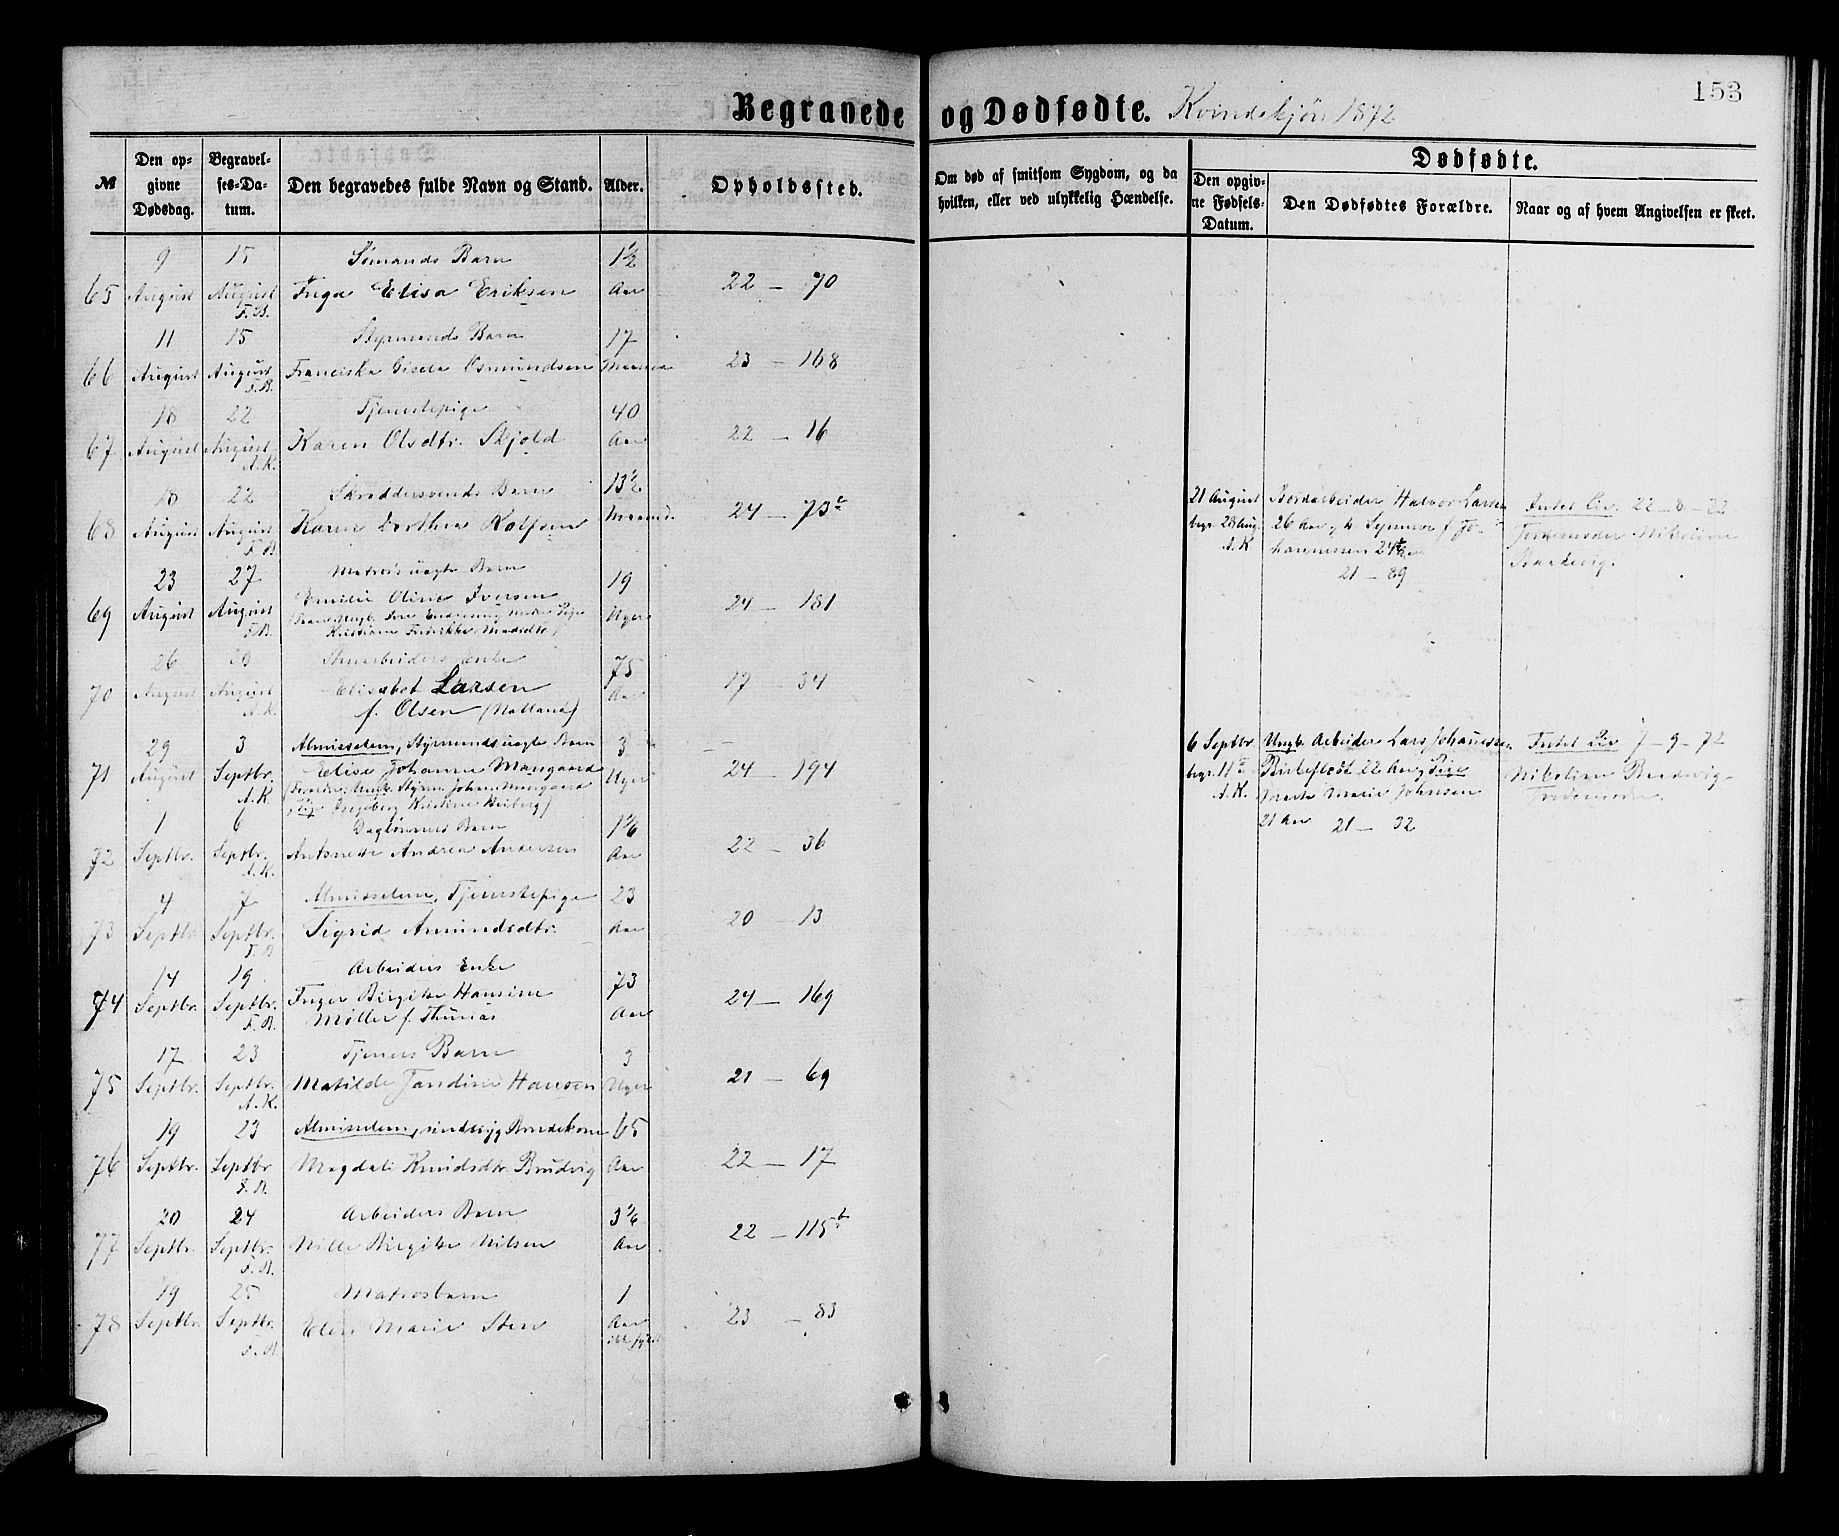 Begravede og Dødfødte. Kvindekjøn 1872
153
№
Den opgivne Dødsdag.
Begravelses-Datum.
Den begravedes fulde Navn og Stand.
Alder.
Opholdssted.
Om død af smitsom Sygdom, og da hvilken, eller ved ulykkelig Hændelse.
Dødfødte.
Den opgivne Fødsels-Datum.
Den Dødfødtes Forældre.
Naar og af hvem Angivelsen er skeet.
9 15 Sømands Barn 1½
65 August August Inga Elisa Eriksen Aar 22 — 70
F.B.
11 15 Styrmands Barn 17
66 August August Franciska Gisela Osmundsen Maaned 23 — 168
F.B.
18 22 Tjenestepige 40
67 August August Karen Olsdtr. Skjold Aar 22 — 16
A.K.
18 22 Skræddersvends Barn 13½
68 August August Karen Dorthea Rolfsen Maaned. 24 — 73
F.B.
21 August Bordarbeider Halvor Larsen
begr. 23 Aug. 26 Aar, h. f. Jo-
A.K. hannessen 24
21 — 89
Intet Liv. 22-8-72
Jordemoder Nikoline
23 27 Matros uægte Barn 19
69 August August Emilie Oline Iversen Uger 24 — 181
F.B. Kristiane Fredrikke Madsdtr.
26 Enke 75
70 August August Elisabet Larsen Aar 17 — 34
A.K. f. Olsen
29 3 Almisselem, Styrmands uægte Barn 3
71 August Septbr. Elise Johanne Uger 24 — 194
A.K. Forældre: Ungk. Styrm. Johan
Pige Ingeborg Kristine
6 Septbr. Ungk. Arbeider Lars Johannessen
begr. 11 22 Aar, Pige
A.K. Marie Johnsen
21 Aar 21 — 32
Intet Liv 7-9-72
Nikoline
Jordemoder.
1 6 Daglønners Barn
72 Septbr. Septbr. Antonette Andrea Andersen Aar 22 — 36
A.K.
4 7 Almisselem, Tjenestepige 23
73 Septbr. Septbr. Sigrid Amundsdtr. Aar 20 — 13
F.B.
14 19 Arbeiders Enke 73
74 Septbr. Septbr. Inger Birgitte Hansine Aar 24 — 169
F.B. Møller f. Thomas
17 23 Tjeners Barn 3
75 Septbr. Septbr. Matilde Tandine Hansen Uger 21 — 69
A.K.
19 23 Almisselem, sindssyg Bondekone 65
76 Septbr. Septbr Magdali Knudsdtr. Brudvig Aar 22 — 17
F.B.
20 24 Arbeiders Barn
77 Septbr. Septbr. Nille Birgitte Nilsen Aar 22 — 115b
F.B.
19 25 Matrosbarn 1
78 Septbr. Septbr. Elen Marie Sten Aar 23 — 83
F.B. ikke fyldt